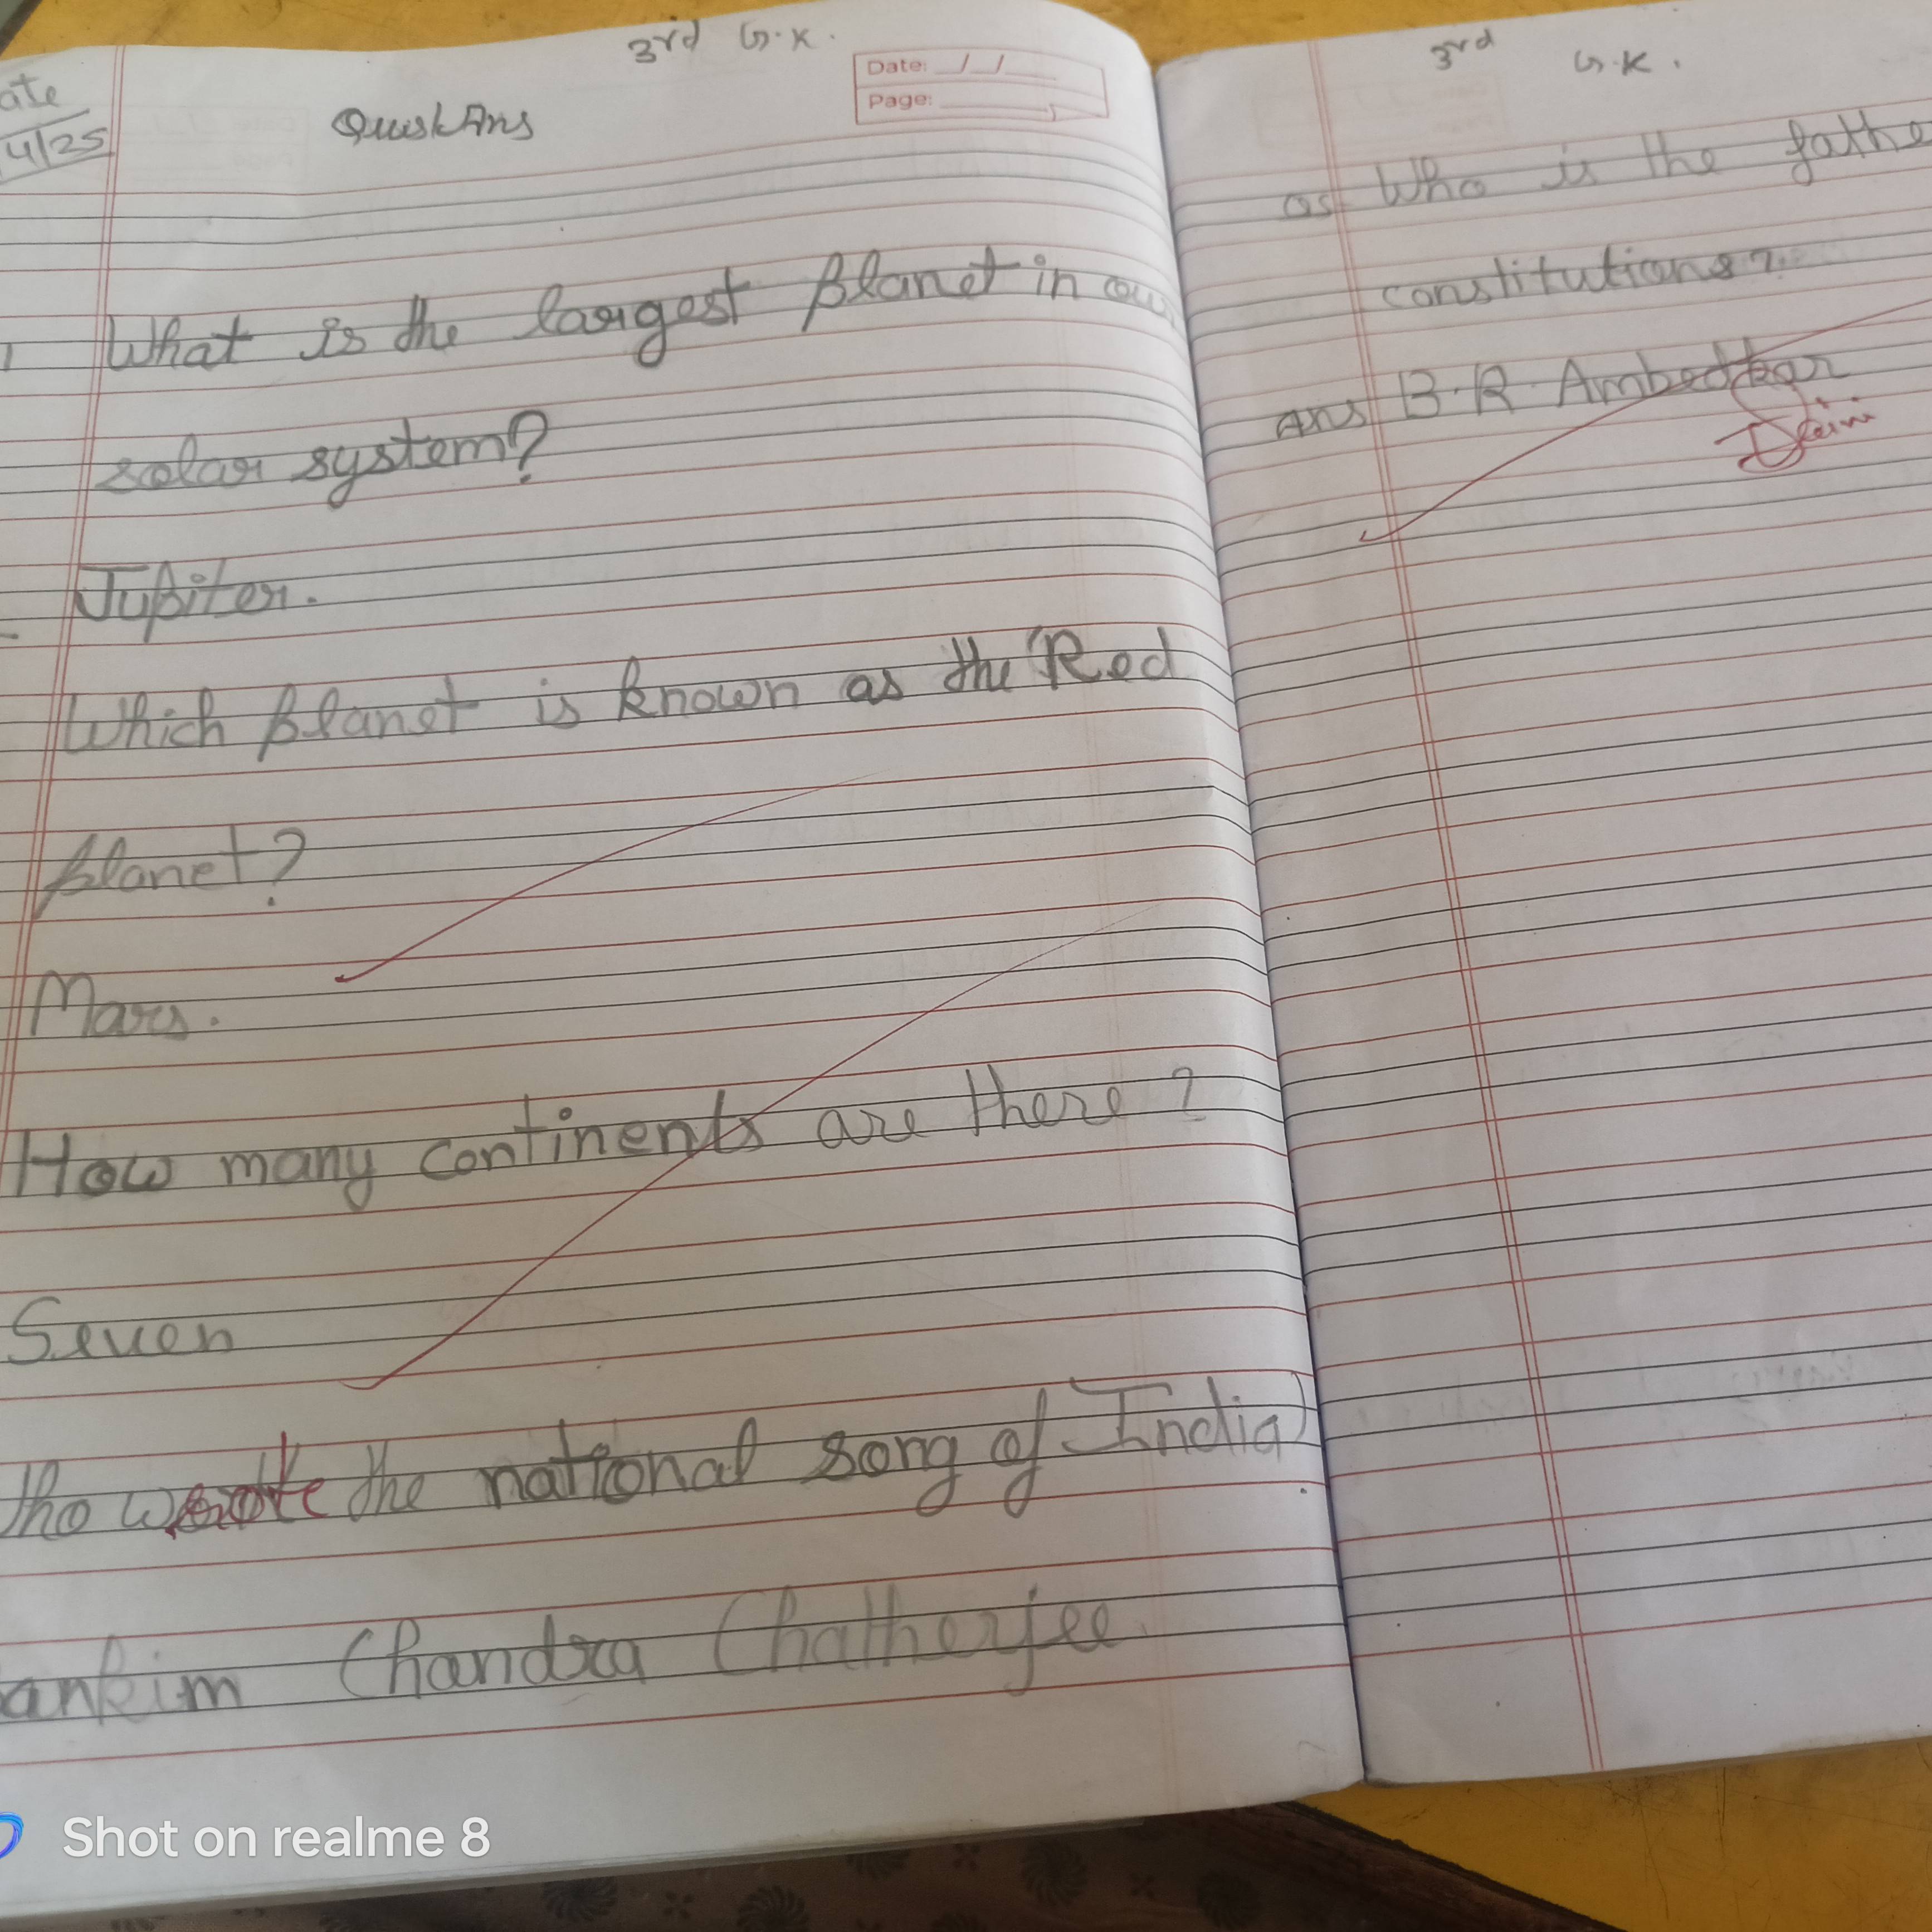 3rd G.K.
Date: / /
Page:
ate
4/25
Ques&Ans
1 What is the largest planet in our
solar system?
Jupiter.
Which planet is known as the Red
planet?
Mars.
How many continents are there?
Seven
ho wrote the national song of India
ankim Chandra Chatherjee.
3rd G.K.
Q5 Who is the fathe
constitutions?
Ans B.R. Ambedkar
Shot on realme 8